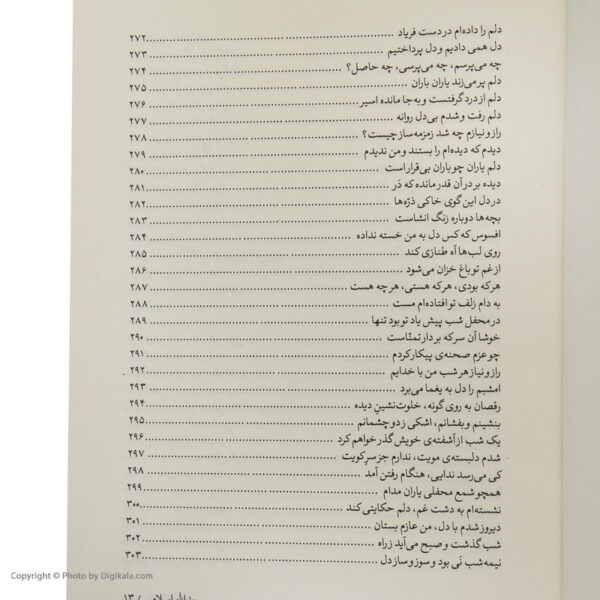 دلم را داده‌ام در دست فریاد ۲۷۲
دل همی دادیم و دل پرداختیم ۲۷۳
چه می‌پرسم، چه می‌پرسی، چه حاصل؟ ۲۷۴
دلم پر می‌زند یاران باران ۲۷۵
دلم از درد گرفتست و به‌جا مانده اسیر ۲۷۶
دلم رفت و شدم بی‌دل روانه ۲۷۷
راز و نیازم چه شد زمزمه ساز چیست؟ ۲۷۸
دیدم که دیده‌ام را بستند و من ندیدم ۲۷۹
دلم یاران چو باران بی‌قرار است ۲۸۰
دیده بر در آن قدر مانده که دَر ۲۸۱
در دل این گوی خاکی ذرّه‌ها ۲۸۲
بچه‌ها دوباره زنگ انشاست ۲۸۳
افسوس که کس دل به من خسته نداده ۲۸۴
روی لب‌ها آه طنازی کند ۲۸۵
از غم تو باغ خزان می‌شود ۲۸۶
هر که بودی، هر که هستی، هر چه هست ۲۸۷
به دام زلف تو افتاده‌ام مست ۲۸۸
در محفل شب پیش یاد تو بود تنها ۲۸۹
خوشا آن سر که بر دار تمنّاست ۲۹۰
چو عزم صحنه‌ی پیکار کردم ۲۹۱
راز و نیاز هر شب من با خدایم ۲۹۲
امشبم را دل به یغما می‌برد ۲۹۳
رقصان به روی گونه، خلوت‌نشین دیده ۲۹۴
بنشینم و بفشانم، اشکی ز دو چشمانم ۲۹۵
یک شب از آشفته‌ی خویش گذر خواهم کرد ۲۹۶
شدم دلبسته‌ی مویت، ندارم جز سر کویت ۲۹۷
کی می‌رسد ندایی، هنگام رفتن آمد ۲۹۸
همچو شمع محفلی یاران مدام ۲۹۹
نشسته‌ام به دشت غم، دلم حکایتی کند ۳۰۰
دیروز شدم با دل، من عازم بستان ۳۰۱
شب گذشت و صبح می‌آید ز راه ۳۰۲
نیمه شب نَی بود و سوز و ساز دل ۳۰۳
۱۳ /
Copyright © Photo by Digikala.com